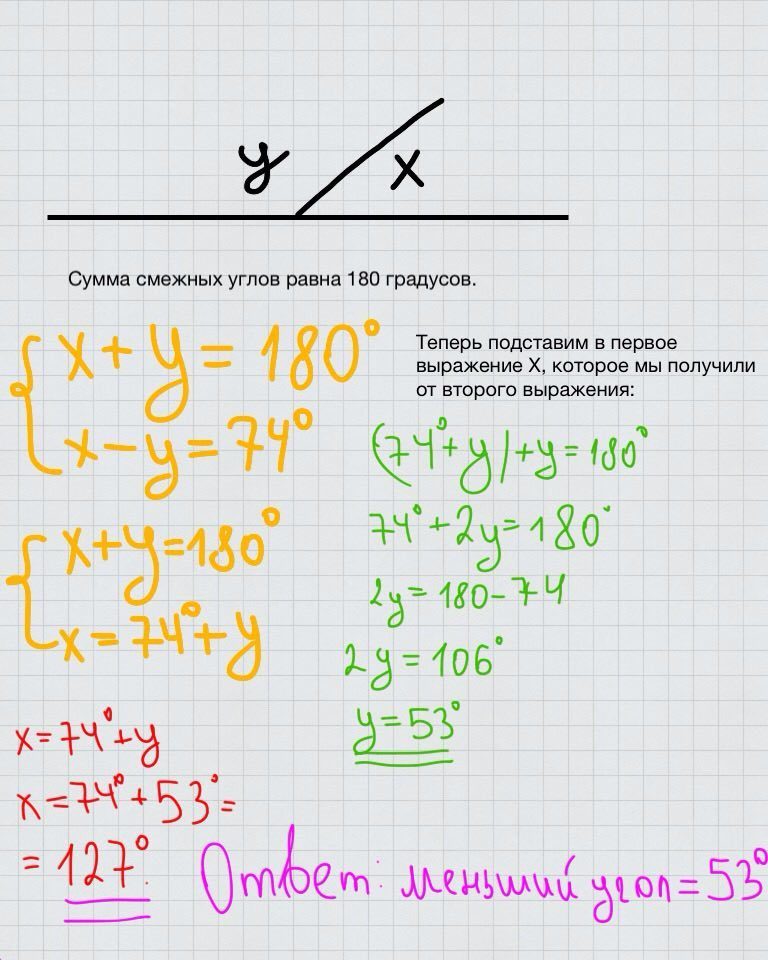 y
x
Сумма смежных углов равна 180 градусов.
x+y=180°
x-y=74°
x+y=180°
x=74°+y
x=74°+y
x=74°+53°=
=127°.
Теперь подставим в первое
выражение X, которое мы получили
от второго выражения:
(74°+y)+y=180°
74°+2y=180°
2y=180-74
2y=106°
y=53°
Ответ: меньший угол=53°